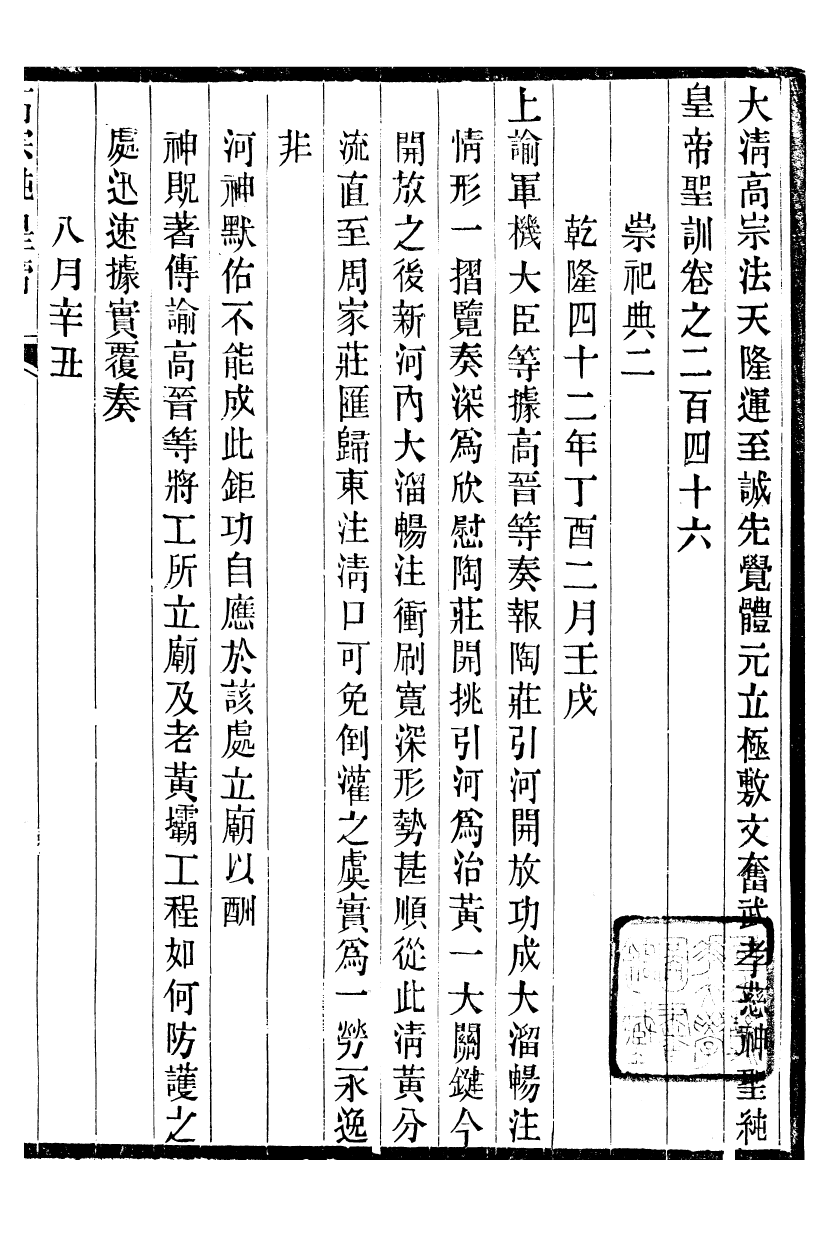 大清高宗法天隆運至誠先覺體元立極敷文奮武孝慈神聖純
皇帝聖訓卷之二百四十六
崇祀典二
乾隆四十二年丁酉二月壬戌
上諭軍機大臣等據高晉等奏報陶莊引河開放功成大溜暢注
情形一摺覽奏深爲欣慰陶莊開挑引河爲治黃一大關鍵今
開放之後新河內大溜暢注衝刷寬深形勢甚順從此清黃分
流直至周家莊匯歸東注清口可免倒灌之虞實爲一勞永逸
非
河神默佑不能成此鉅功自應於該處立廟以酬
神貺著傳諭高晉等將工所立廟及老黃壩工程如何防護之
處迅速據實覆奏
八月辛丑